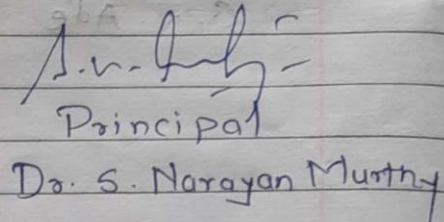 Principal
Dr. S. Narayan Murthy